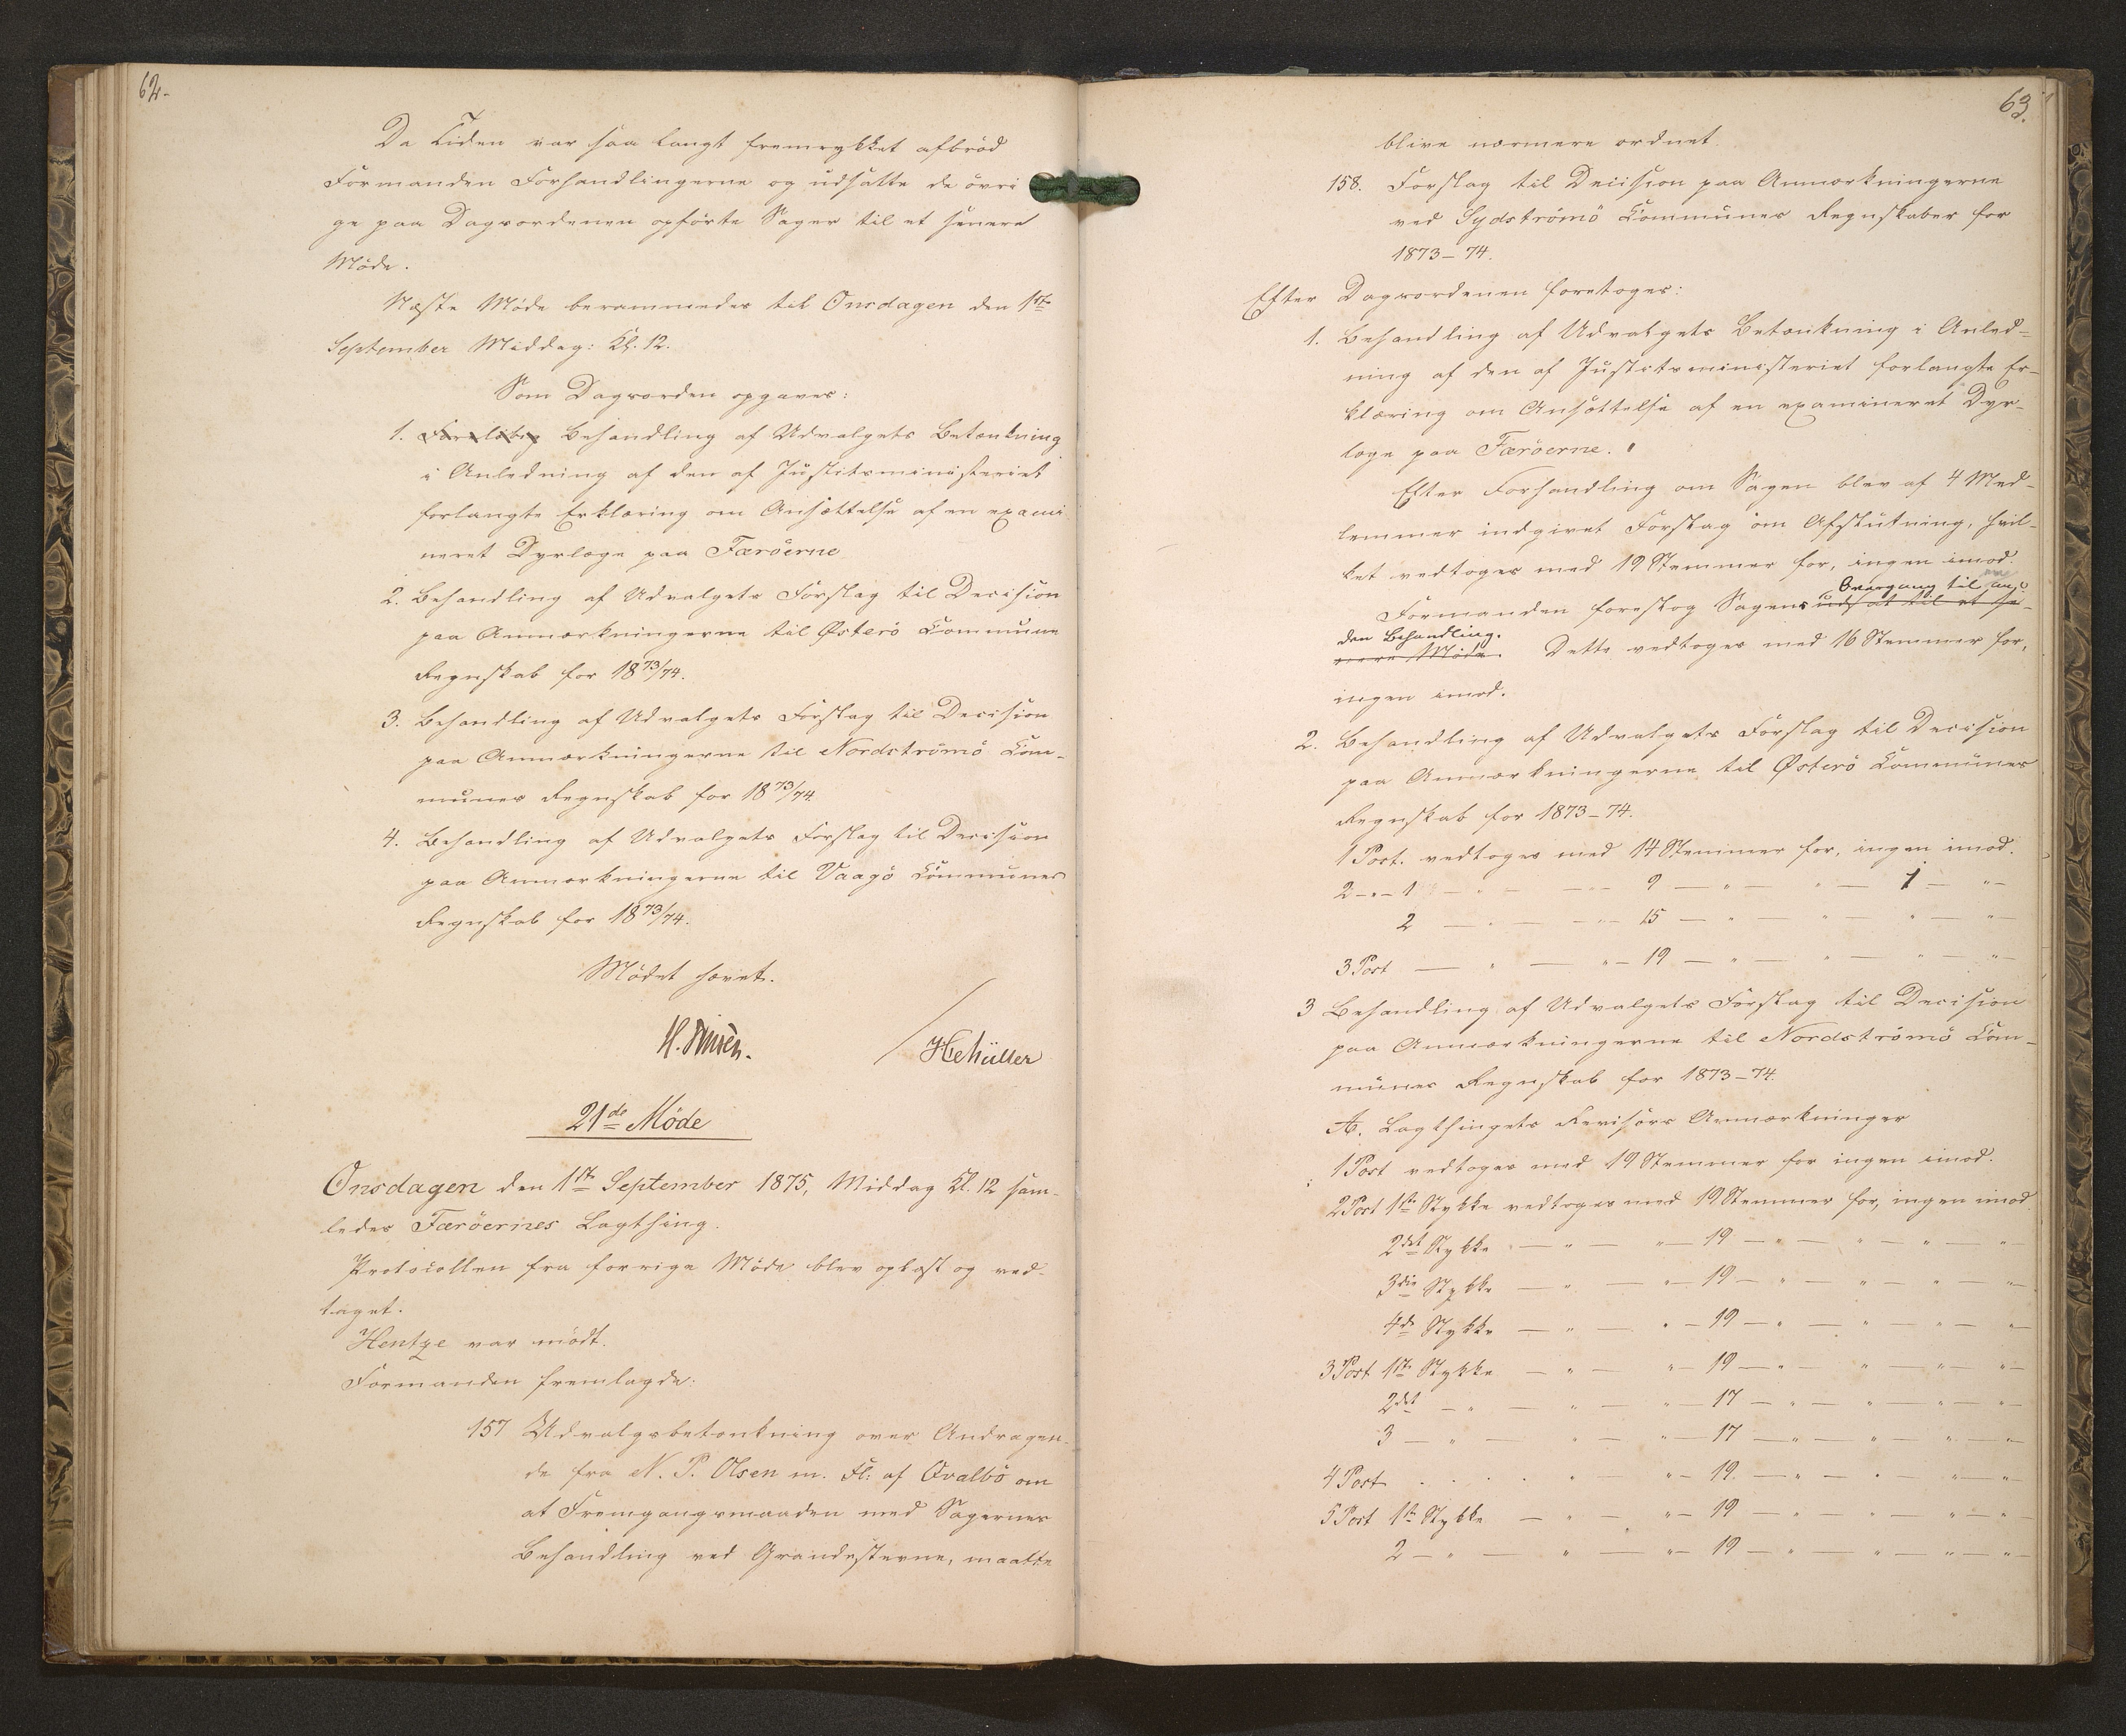 62.
Da Tiden var saa langt fremrykket afbröd
Formanden Forhandlingerne og udsatte de övri
ge paa Dagsordenen opförte Sager til et senere
Möde.
Næste Möde berammedes til Onsdagen den 1ste
September Middag: Kl. 12.
Som Dagsorden opgaves:
1. Foreløbig Behandling af Udvalgets Betænkning
i Anledning af den af Justitsministeriet
forlangte Erklæring om Ansættelse af en exami
neret Dyrlæge paa Færöerne
2. Behandling af Udvalgets Forslag til Decision
paa Anmærkningerne til Østerö Kommune
Regnskab for 1873/74.
3. Behandling af Udvalgets Forslag til Decision
paa Anmærkningerne til Nordströmö Kom-
munes Regnskab for 1873/74.
4. Behandling af Udvalgets Forslag til Decision
paa Anmærkningerne til Vaagö Kommunes
Regnskab for 1873/74.
Mödet hævet.
21de Möde
Onsdagen den 1ste September 1875, Middag Kl. 12 sam-
ledes Færöernes Lagthing.
Protocollen fra forrige Möde blev oplæst og ved-
taget.
Hentze var mödt.
Formanden fremlagde:
157 Udvalgsbetænkning over Andragen-
de fra N. P. Olsen m. Fl: af Qvalbö om
at Fremgangsmaaden med Sagernes
Behandling ved Grandesterne, maatte
63.
blive nærmere ordnet.
158. Forslag til Decision paa Anmærkningerne
ved Sydströmö Kommunes Regnskaber for
1873-74.
Efter Dagsordenen foretoges:
1. Behandling af Udvalgets Betænkning i Anled-
ning af den af Justitsministeriet forlangte Er-
klæring om Ansættelse af en examineret Dyr-
læge paa Færöerne.
Efter Forhandling om Sagen blev af 4 Med-
lemmer indgivet Forslag om Afslutning, hvil-
ket vedtoges med 19 Stemmer for, ingen imod.
Overgang til an
Formanden foreslog Sagens udsat til et se-
den Behandling.
nere Möde. Dette vedtoges med 16 Stemmer for,
ingen imod.
2. Behandling af Udvalgets Forslag til Decision
paa Anmærkningerne til Østerö Kommunes
Regnskab for 1873-74.
1 Post. vedtoges med 14 Stemmer for, ingen imod.
2 - " - 1 — " — — " 9 — " — " — 1 — "
2 — " — — " 15 — " — " — " — "
3 Post — " — " — 19 — " — " — " — "
3 Behandling af Udvalgets Forslag til Decision
paa Anmærkningerne til Nordströmö Kom-
munes Regnskab for 1873-74.
A. Lagthingets Revisors Anmærkninger
1 Post vedtoges med 19 Stemmer for ingen imod.
2 Post 1ste Stykke vedtoges med 19 Stemmer for, ingen imod
2det Stykke — " — " — 19 — " — " — " — "
3die Stykke — " — " — 19 — " — " — " — "
4de Stykke — " — " — 19 — " — " — " — "
3 Post 1ste Stykke — " — " — 19 — " — " — " — "
2det — " — " — " — 17 — " — " — " — "
3 — " — " — " — 17 — " — " — " — "
4 Post . . . . " " — 19 — " — " — " — "
5 Post 1ste Stykke — " — " — 19 — " — " — " — "
2 — " — " — " — 19 — " — " — " — "